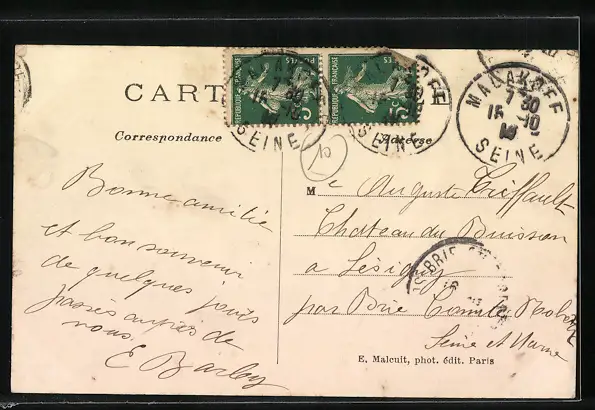 CART E
Correspondance
Adresse
REPUBLIQUE FRANÇAISE
POSTES
5c
REPUBLIQUE FRANÇAISE
POSTES
5c
MALAKOFF
7 30
15 - 10
SEINE
10
Bonne amitié
et bon souvenir
de quelques jours
passés auprès de
nous.
E Barloy
Me Auguste Treffault
Chateau du Buisson
a Lésigny
par Brie Comte Robert
Seine et Marne
E. Malcuit, phot. édit. Paris